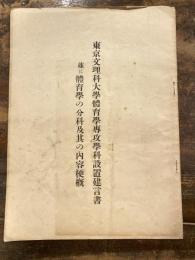 東京文理科大學體育學專攻學科設置建言書
並に體育學の分科及其の內容梗槪